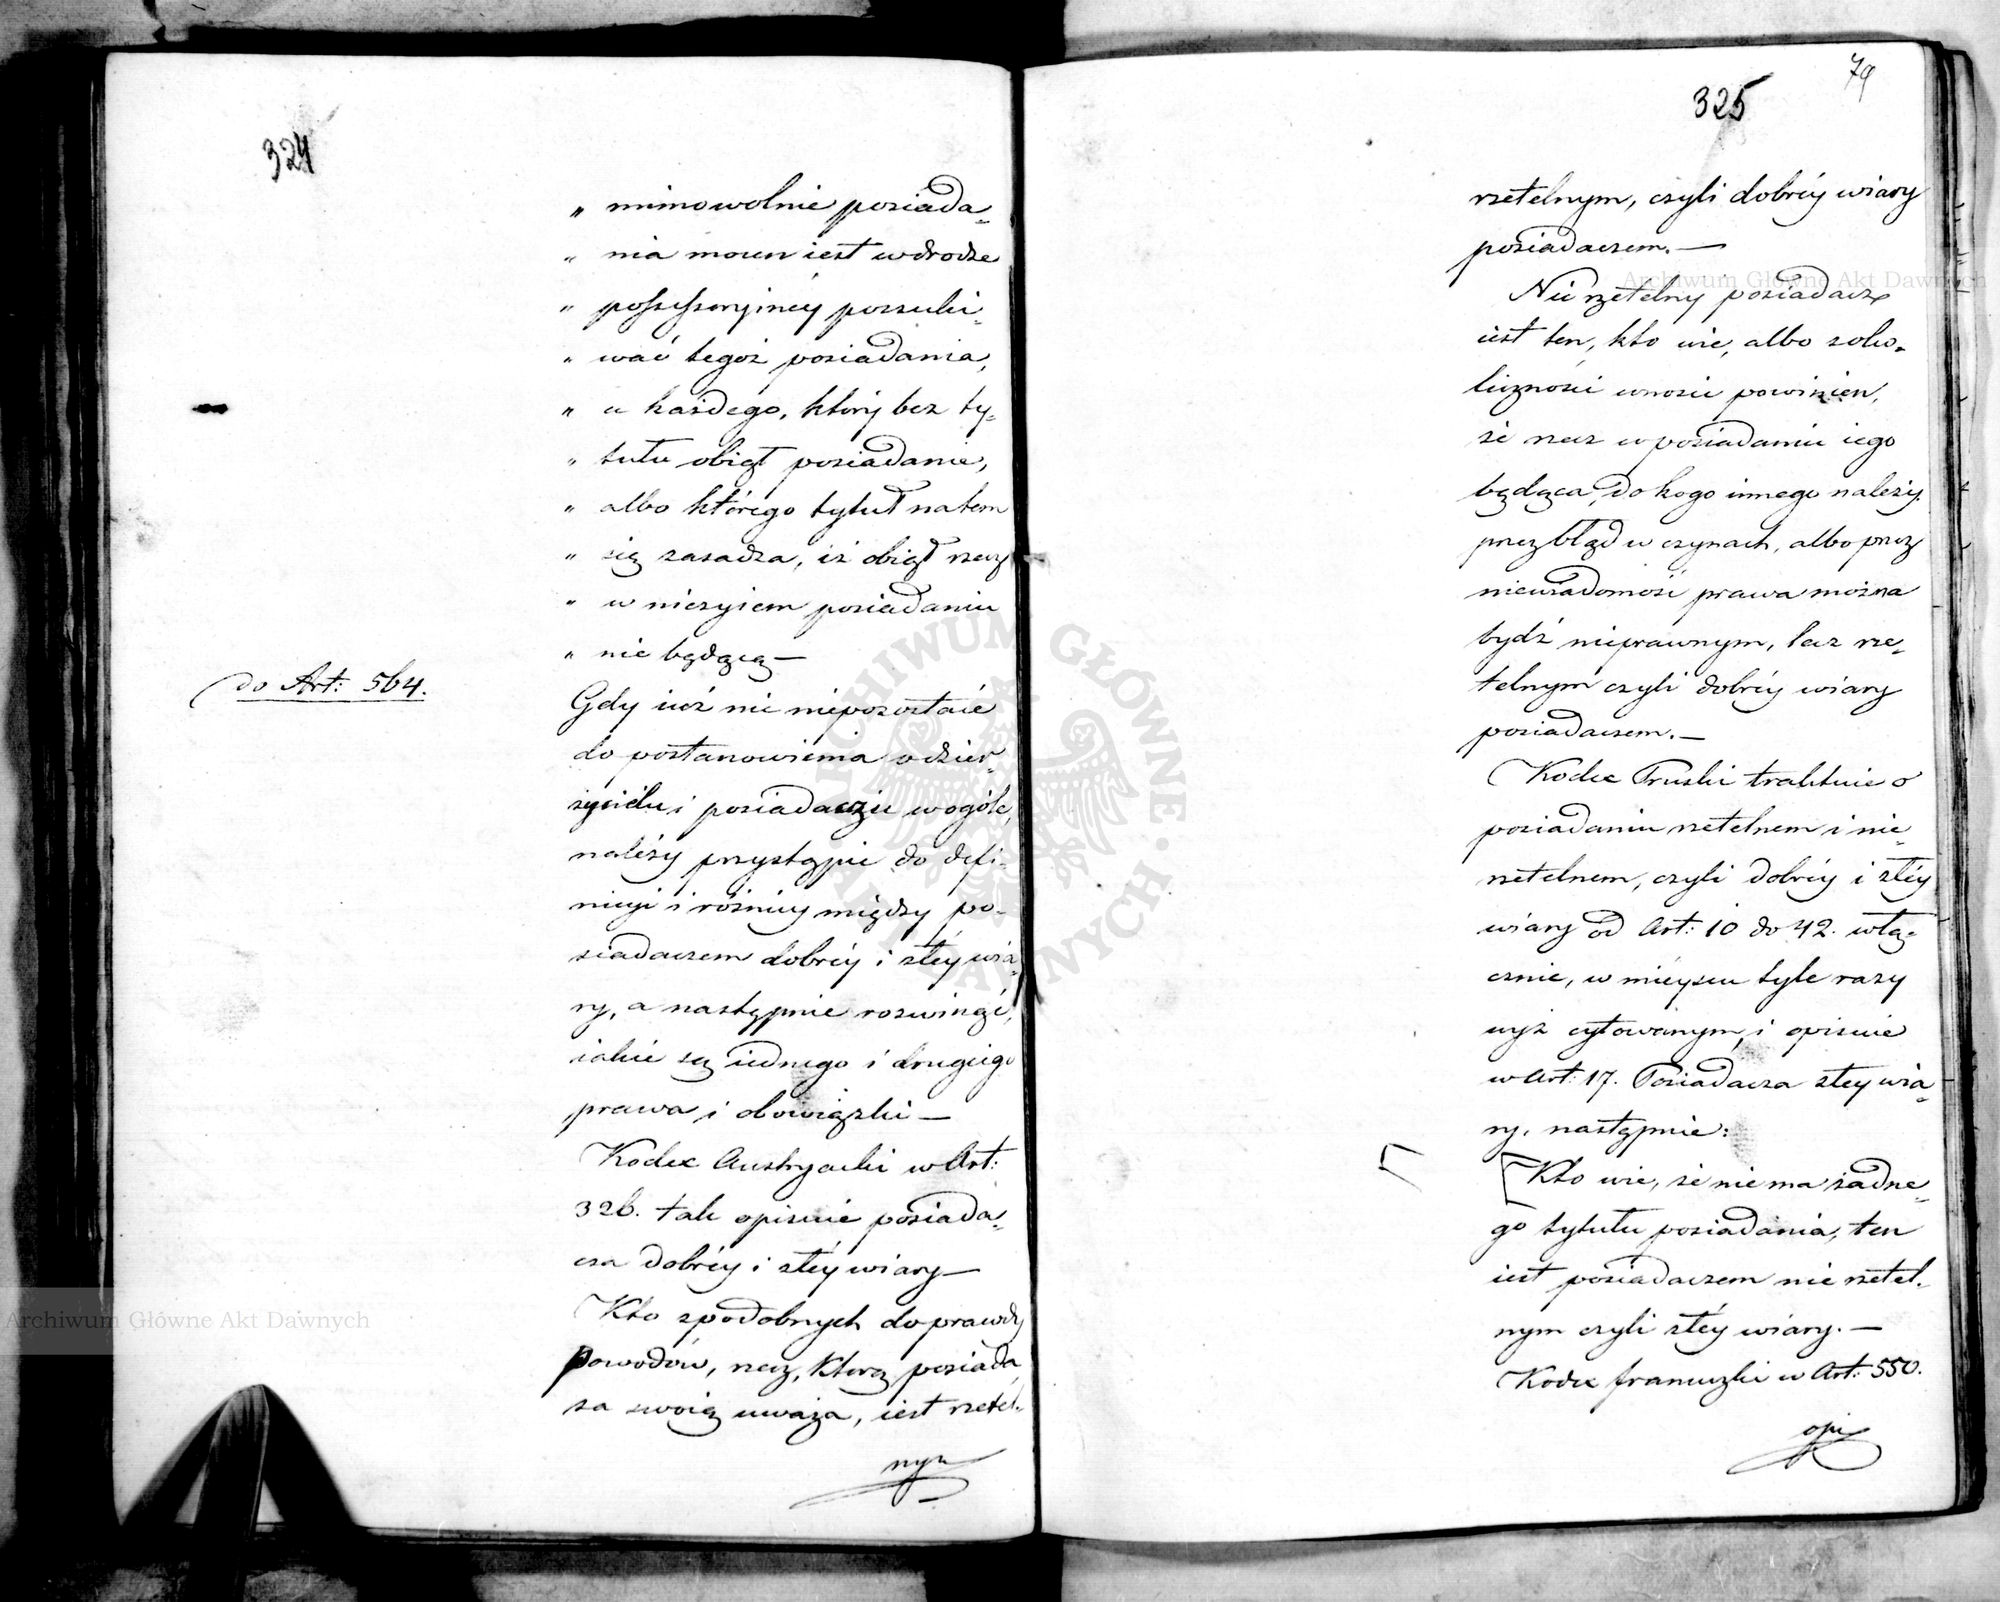 324
„ mimowolnie posiada-
„ nia mocen iest w drodze
„ possessoryinéy poszuki-
„ wać tegoż posiadania,
„ u każdego, który bez ty-
„ tułu obiął posiadanie,
„ albo którego tytuł na tem
„ się zasadza, iż obiął rzecz
„ w niczyiem posiadaniu
„ nie będącą —
do Art: 564.
Gdy iuż nic niepozostaie
do postanowienia o dzier-
życielu i posiadaczu w ogóle,
należy przystąpić do defi-
nicyi i różnicy między po-
siadaczem dobréy i złéy wia-
ry, a następnie rozwinąć,
iakie są iednego i drugiego
prawa i obowiązki —
Kodex Austryacki w Art:
326. tak opisuie posiada-
cza dobréy i złéy wiary —
Kto z podobnych do prawdy
powodów, rzecz, którą posiada
za swoią uważa, iest rzetel-
nym
79
325
rzetelnym, czyli dobréy wiary
posiadaczem. —
Nierzetelny posiadacz
iest ten, kto wie, albo z oko-
liczności wnosić powinien,
że rzecz w posiadaniu iego
będąca, do kogo innego należy.
przez błąd w czynach, albo przez
niewiadomość prawa można
bydź nieprawnym, lecz rze-
telnym czyli dobréy wiary
posiadaczem. —
Kodex Pruski traktuie o
posiadaniu rzetelnem i nie-
rzetelnem, czyli dobréy i złéy
wiary od Art: 10 do 42. włą-
cznie, w mieyscu tyle razy
wyż cytowanym, i opisuie
w Art: 17. Posiadacza złey wia-
ry, następnie:
Kto wie, że nie ma żadne-
go tytułu posiadania, ten
iest posiadaczem nie rzetel-
nym czyli złéy wiary. —
Kodex francuzki w Art: 550.
opi
Archiwum Główne Akt Dawnych
Archiwum Główne Akt Dawnych
ARCHIWUM GŁÓWNE AKT DAWNYCH